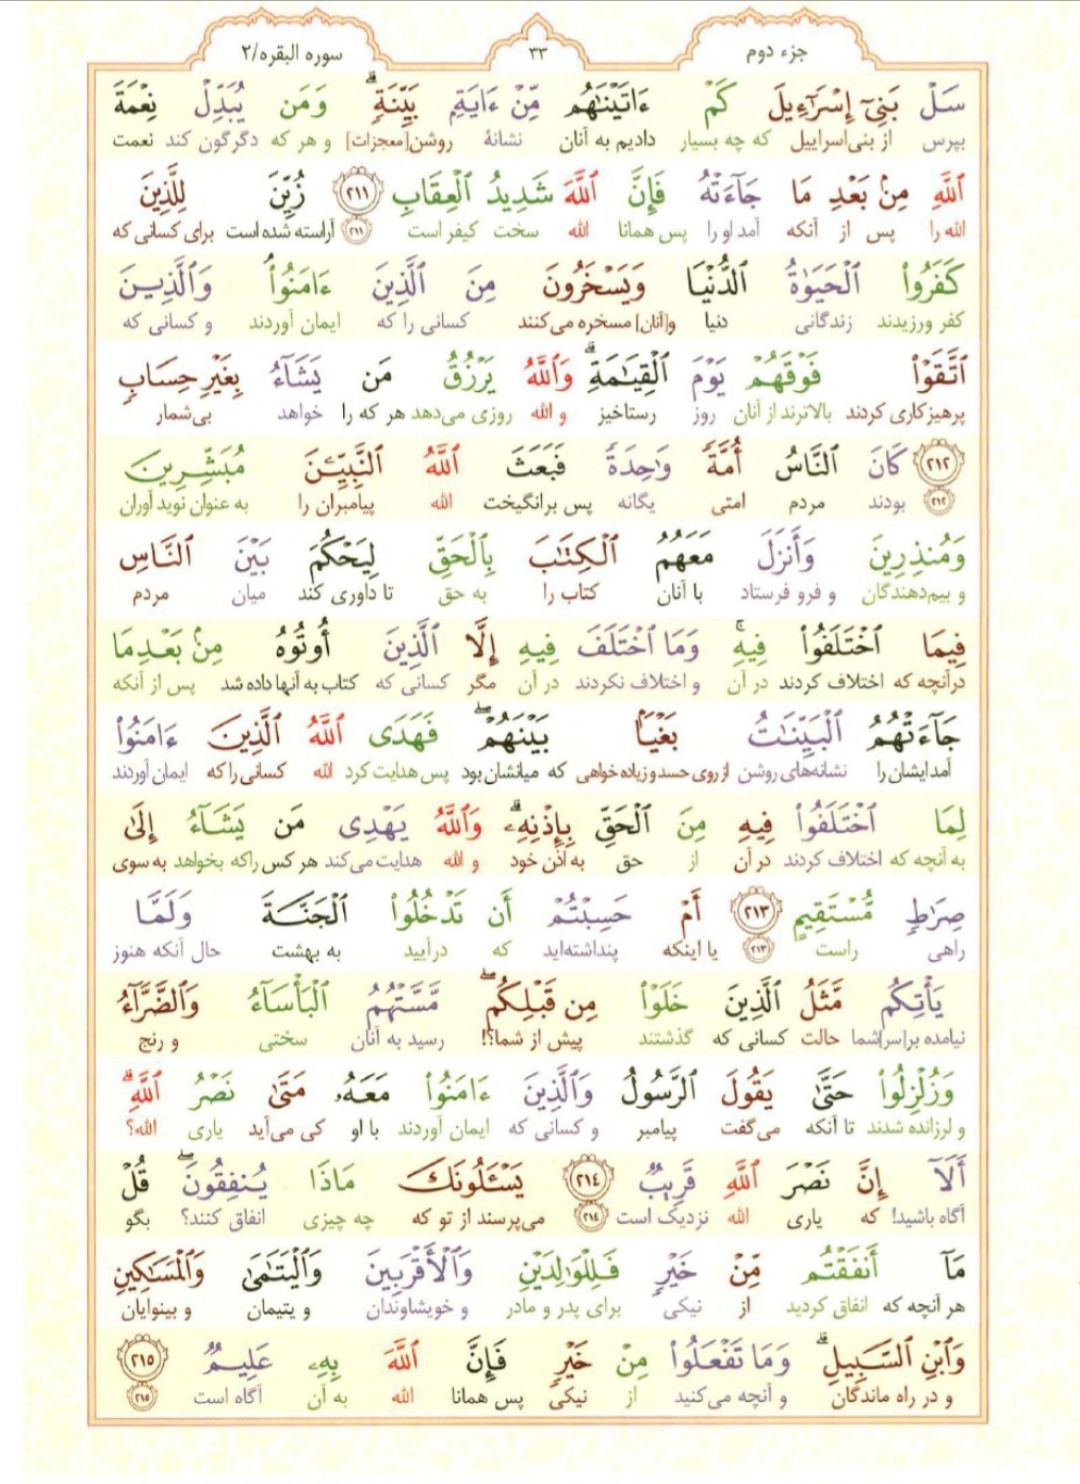 جزء دوم ۳۳ سوره البقره/۲
سَلْ بَنِىٓ إِسْرَٰٓءِيلَ كَمْ ءَاتَيْنَٰهُم مِّنْ ءَايَةٍۭ بَيِّنَةٍۗ وَمَن يُبَدِّلْ نِعْمَةَ
بپرس از بنی‌اسراییل که چه بسیار دادیم به آنان نشانهٔ روشن[معجزات] و هر که دگرگون کند نعمت
ٱللَّهِ مِنۢ بَعْدِ مَا جَآءَتْهُ فَإِنَّ ٱللَّهَ شَدِيدُ ٱلْعِقَابِ ٢١١ زُيِّنَ لِلَّذِينَ
الله را پس از آنکه آمد او را پس همانا الله سخت کیفر است ٢١١ آراسته شده است برای کسانی که
كَفَرُوا۟ ٱلْحَيَوٰةُ ٱلدُّنْيَا وَيَسْخَرُونَ مِنَ ٱلَّذِينَ ءَامَنُوا۟ۘ وَٱلَّذِينَ
کفر ورزیدند زندگانی دنیا و[آنان] مسخره می‌کنند کسانی را که ایمان آوردند و کسانی که
ٱتَّقَوْا۟ فَوْقَهُمْ يَوْمَ ٱلْقِيَٰمَةِۗ وَٱللَّهُ يَرْزُقُ مَن يَشَآءُ بِغَيْرِ حِسَابٍ
پرهیزکاری کردند بالاترند از آنان روز رستاخیز و الله روزی می‌دهد هر که را خواهد بی‌شمار
٢١٢ كَانَ ٱلنَّاسُ أُمَّةً وَٰحِدَةً فَبَعَثَ ٱللَّهُ ٱلنَّبِيِّـۧنَ مُبَشِّرِينَ
٢١٢ بودند مردم امتی یگانه پس برانگیخت الله پیامبران را به عنوان نوید آوران
وَمُنذِرِينَ وَأَنزَلَ مَعَهُمُ ٱلْكِتَٰبَ بِٱلْحَقِّ لِيَحْكُمَ بَيْنَ ٱلنَّاسِ
و بیم‌دهندگان و فرو فرستاد با آنان کتاب را به حق تا داوری کند میان مردم
فِيمَا ٱخْتَلَفُوا۟ فِيهِۚ وَمَا ٱخْتَلَفَ فِيهِ إِلَّا ٱلَّذِينَ أُوتُوهُ مِنۢ بَعْدِ مَا
درآنچه که اختلاف کردند در آن و اختلاف نکردند در آن مگر کسانی که کتاب به آنها داده شد پس از آنکه
جَآءَتْهُمُ ٱلْبَيِّنَٰتُ بَغْيًۢا بَيْنَهُمْۖ فَهَدَى ٱللَّهُ ٱلَّذِينَ ءَامَنُوا۟
آمد ایشان را نشانه‌های روشن از روی حسد و زیاده خواهی که میانشان بود پس هدایت کرد الله کسانی را که ایمان آوردند
لِمَا ٱخْتَلَفُوا۟ فِيهِ مِنَ ٱلْحَقِّ بِإِذْنِهِۦۗ وَٱللَّهُ يَهْدِى مَن يَشَآءُ إِلَىٰ
به آنچه که اختلاف کردند در آن از حق به اذن خود و الله هدایت می‌کند هر کس راکه بخواهد به سوی
صِرَٰطٍ مُّسْتَقِيمٍ ٢١٣ أَمْ حَسِبْتُمْ أَن تَدْخُلُوا۟ ٱلْجَنَّةَ وَلَمَّا
راهی راست ٢١٣ یا اینکه پنداشته‌اید که درآیید به بهشت حال آنکه هنوز
يَأْتِكُم مَّثَلُ ٱلَّذِينَ خَلَوْا۟ مِن قَبْلِكُمۖ مَّسَّتْهُمُ ٱلْبَأْسَآءُ وَٱلضَّرَّآءُ
نیامده بر[سر]شما حالت کسانی که گذشتند پیش از شما؟! رسید به آنان سختی و رنج
وَزُلْزِلُوا۟ حَتَّىٰ يَقُولَ ٱلرَّسُولُ وَٱلَّذِينَ ءَامَنُوا۟ مَعَهُۥ مَتَىٰ نَصْرُ ٱللَّهِۗ
و لرزانده شدند تا آنکه می‌گفت پیامبر و کسانی که ایمان آوردند با او کی می‌آید یاری الله؟
أَلَآ إِنَّ نَصْرَ ٱللَّهِ قَرِيبٌ ٢١٤ يَسْـَٔلُونَكَ مَاذَا يُنفِقُونَۖ قُلْ
آگاه باشید! که یاری الله نزدیک است ٢١٤ می‌پرسند از تو که چه چیزی انفاق کنند؟ بگو
مَآ أَنفَقْتُم مِّنْ خَيْرٍ فَلِلْوَٰلِدَيْنِ وَٱلْأَقْرَبِينَ وَٱلْيَتَٰمَىٰ وَٱلْمَسَٰكِينِ
هر آنچه که انفاق کردید از نیکی برای پدر و مادر و خویشاوندان و یتیمان و بینوایان
وَٱبْنِ ٱلسَّبِيلِۗ وَمَا تَفْعَلُوا۟ مِنْ خَيْرٍ فَإِنَّ ٱللَّهَ بِهِۦ عَلِيمٌ ٢١٥
و در راه ماندگان و آنچه می‌کنید از نیکی پس همانا الله به آن آگاه است ٢١٥